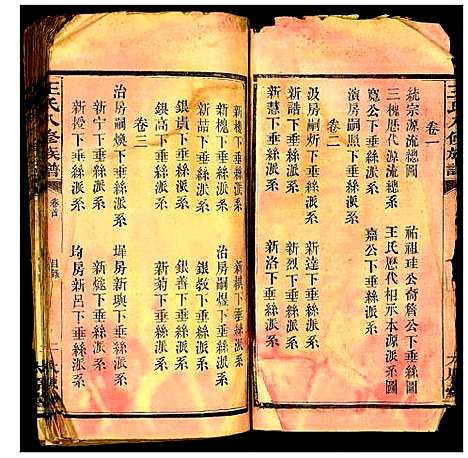 王氏八修族譜
卷一
統宗源流總圖
祐祖珪公裔詹公下垂絲圖
三槐歷代源流總系
王氏歷代相承本源派系圖
寬公下垂絲派系
嘉公下垂絲派系
演房嗣照下垂絲派系
卷二
汲房嗣炘下垂絲派系
新達下垂絲派系
新誥下垂絲派系
新烈下垂絲派系
新慧下垂絲派系
新洛下垂絲派系
新槐下垂絲派系
新棋下垂絲派系
新槐下垂絲派系
治房嗣煜下垂絲派系
新喆下垂絲派系
銀教下垂絲派系
銀貴下垂絲派系
銀善下垂絲派系
銀高下垂絲派系
新菊下垂絲派系
卷三
治房嗣燠下垂絲派系
墀房新輿下垂絲派系
新宁下垂絲派系
新煶下垂絲派系
新定下垂絲派系
均房新呂下垂絲派系
王氏八修族譜
卷首
目錄